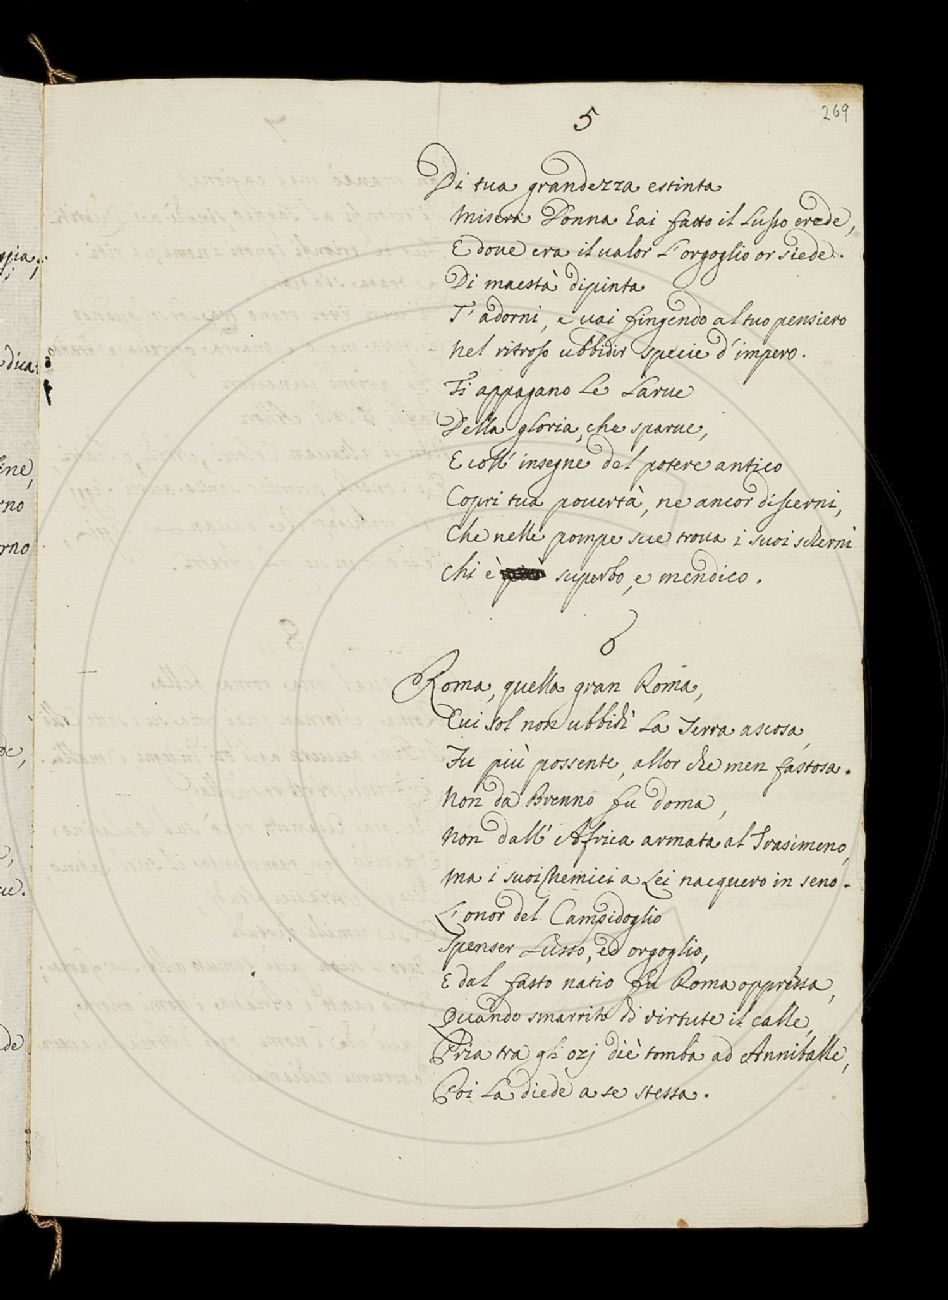 269
5
Di tua grandezza estinta
Misera Donna hai fatto il Lusso erede,
E dove era il valor l'orgoglio or siede.
Di maestà dipinta
T'adorni, e vai fingendo al tuo pensiero
Nel ritroso ubbidir specie d'impero.
Ti appagano le Larve
Della gloria, che sparve,
E coll'insegne del potere antico
Copri tua povertà, ne ancor discerni,
Che nelle pompe sue trova i suoi scherni
Chi è superbo, e mendico.
6
Roma, quella gran Roma,
Cui sol non ubbidì la Terra ascosa,
Fu più possente, allor che men fastosa.
Non da Brenno fu doma,
Non dall'Africa armata al Trasimeno,
Ma i suoi Nemici a Lei nacquero in seno.
L'onor del Campidoglio
Spenser Lusso, ed orgoglio,
E dal fasto natio fu Roma oppressa,
Quando smarrito di virtute il calle,
Pria tra gli ozj diè tomba ad Anniballe,
Poi la diede a se stessa.